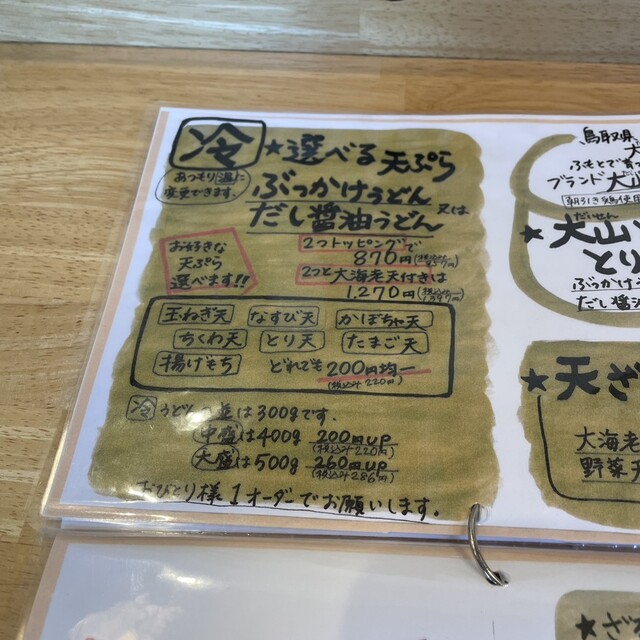 冷 ★選べる天ぷら
あつもり温に
変更できます。
ぶっかけうどん
又は
だし醤油うどん
お好きな
天ぷら
選べます!!
2つトッピングで
870円(税込み957円)
2つと大海老天付きは
1,270円(税込み1,397円)
玉ねぎ天 なすび天 かぼちゃ天
ちくわ天 とり天 たまご天
揚げもち どれでも200円均一
(税込み220円)
冷うどん 並は300gです。
中盛は400g 200円UP
(税込み220円)
大盛は500g 260円UP
(税込み286円)
おひとり様1オーダーでお願いします。
鳥取県
ふもとで育
ブランド大山
朝引き鶏使用
だいせん
★大山
とり
ぶっかけう
だし醤
★天ざ
大海老
野菜天
★ざ